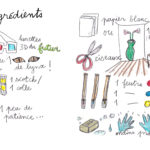 grédients
lunettes
3D du
de lynx !
1 scotch/
colle
1 peu de
patience...
papier blanc
ou
ciseaux
1 feutre